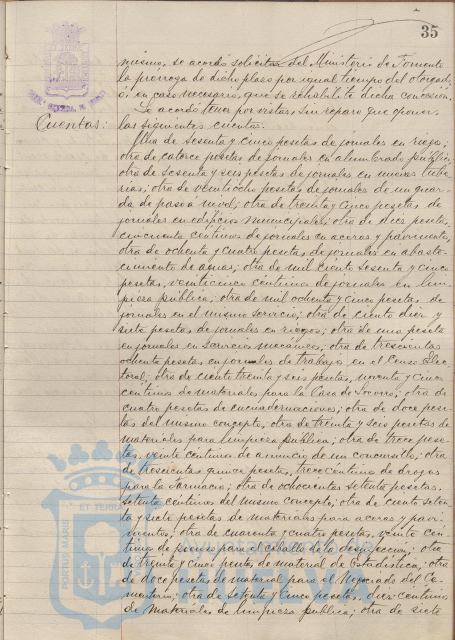 35
mismo, se acordó solicitar del Ministerio de Fomento
la prórroga de dicho plazo por igual tiempo del otorgado,
ó, en caso necesario, que se rehabilite dicha concesión.
Se acordó tener por vistas, sin reparo que oponer,
Cuentas: las siguientes cuentas:
Una de sesenta y cinco pesetas de jornales en riego;
otra de catorce pesetas de jornales en alumbrado público;
otra de sesenta y seis pesetas de jornales en nuevas tube-
rías; otra de veintiocho pesetas de jornales de un guar-
da de paso a nivel; otra de treinta y cinco pesetas de
jornales en edificios municipales; otra de diez pesetas
cincuenta centimos de jornales en aceras y pavimentos;
otra de ochenta y cuatro pesetas de jornales en abaste-
cimiento de aguas; otra de mil ciento sesenta y cinco
pesetas, veinticinco centimos de jornales en lim-
pieza pública; otra de mil ochenta y cinco pesetas de
jornales en el mismo servicio; otra de ciento diez y
siete pesetas, de jornales en riegos; otra de una peseta
en jornales en servicio mecánico; otra de trescientas
ochenta pesetas en jornales de trabajo en el Censo Elec-
toral; otra de ciento treinta y seis pesetas, noventa y cinco
centimos de materiales para la Casa de Socorro; otra de
cuatro pesetas de encuadernaciones; otra de doce pese-
tas del mismo concepto; otra de treinta y seis pesetas de
materiales para limpieza publica; otra de trece pese-
tas, veinte centimos de anuncio de un concursillo; otra
de trescientas quince pesetas, trece centimos de drogas
para la Farmacia; otra de ochocientas setenta pesetas
setenta centimos del mismo concepto; otra de ciento seten-
ta y siete pesetas de materiales para aceras y pavi-
mentos; otra de cuarenta y cuatro pesetas, veinte cen-
timos de pienso para el caballo de la desinfección; otra
de treinta y cinco pesetas de material de Estadística; otra
de doce pesetas de material para el Negociado del Ce-
menterio; otra de setenta y cinco pesetas, diez centimos
de materiales de limpieza publica; otra de siete
PORTUS MARIS ET TERRA